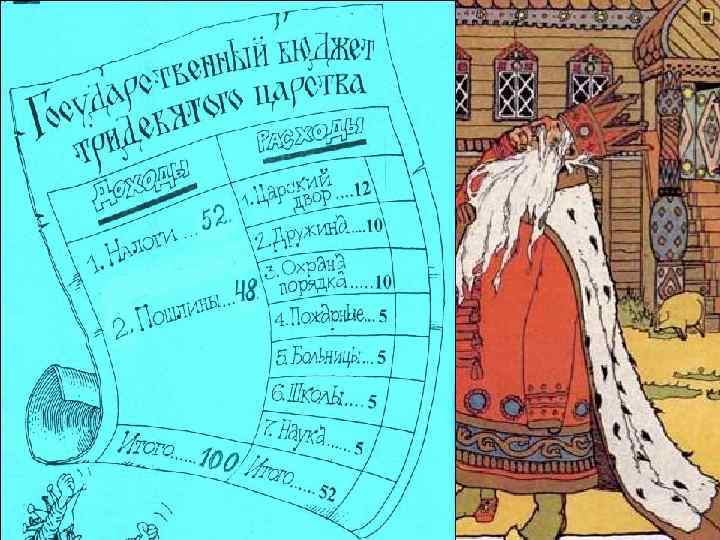 Государственный бюджет
тридевятого царства
Доходы
1. Налоги ... 52.
2. Пошлины... 48.
Итого..... 100
Расходы
1. Царский
двор .... 12
2. Дружина ..... 10
3. Охрана
порядка...... 10
4. Пожарные... 5
5. Больницы... 5
6. Школы.... 5
7. Наука...... 5
Итого...... 52